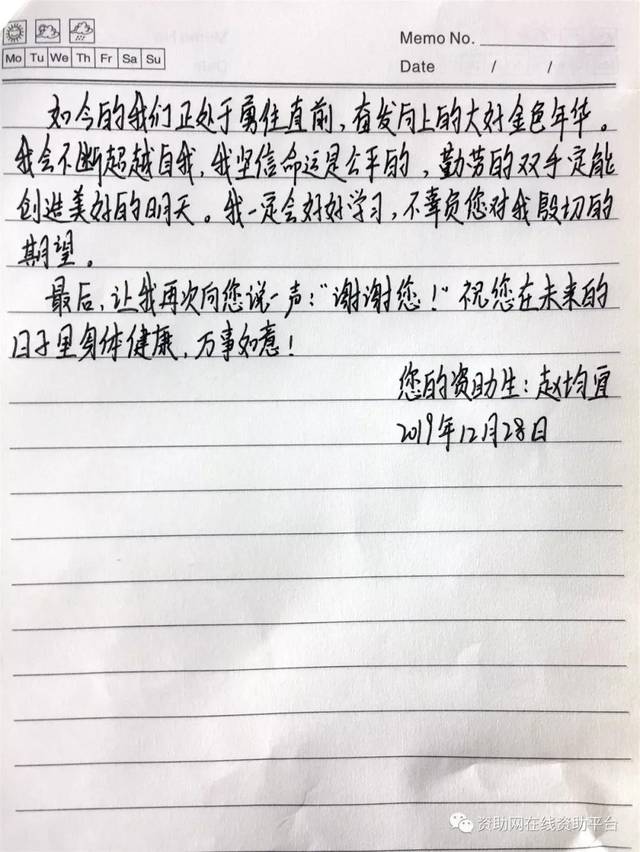 Memo No.
Mo Tu We Th Fr Sa Su
Date / /
如今的我们正处于勇往直前,奋发向上的大好金色年华。
我会不断超越自我,我坚信命运是公平的,勤劳的双手定能
创造美好的明天。我一定会好好学习,不辜负您对我殷切的
期望。
最后,让我再次向您说一声:“谢谢您!”祝您在未来的
日子里身体健康,万事如意!
您的资助生:赵均宜
2019年12月28日
资助网在线资助平台